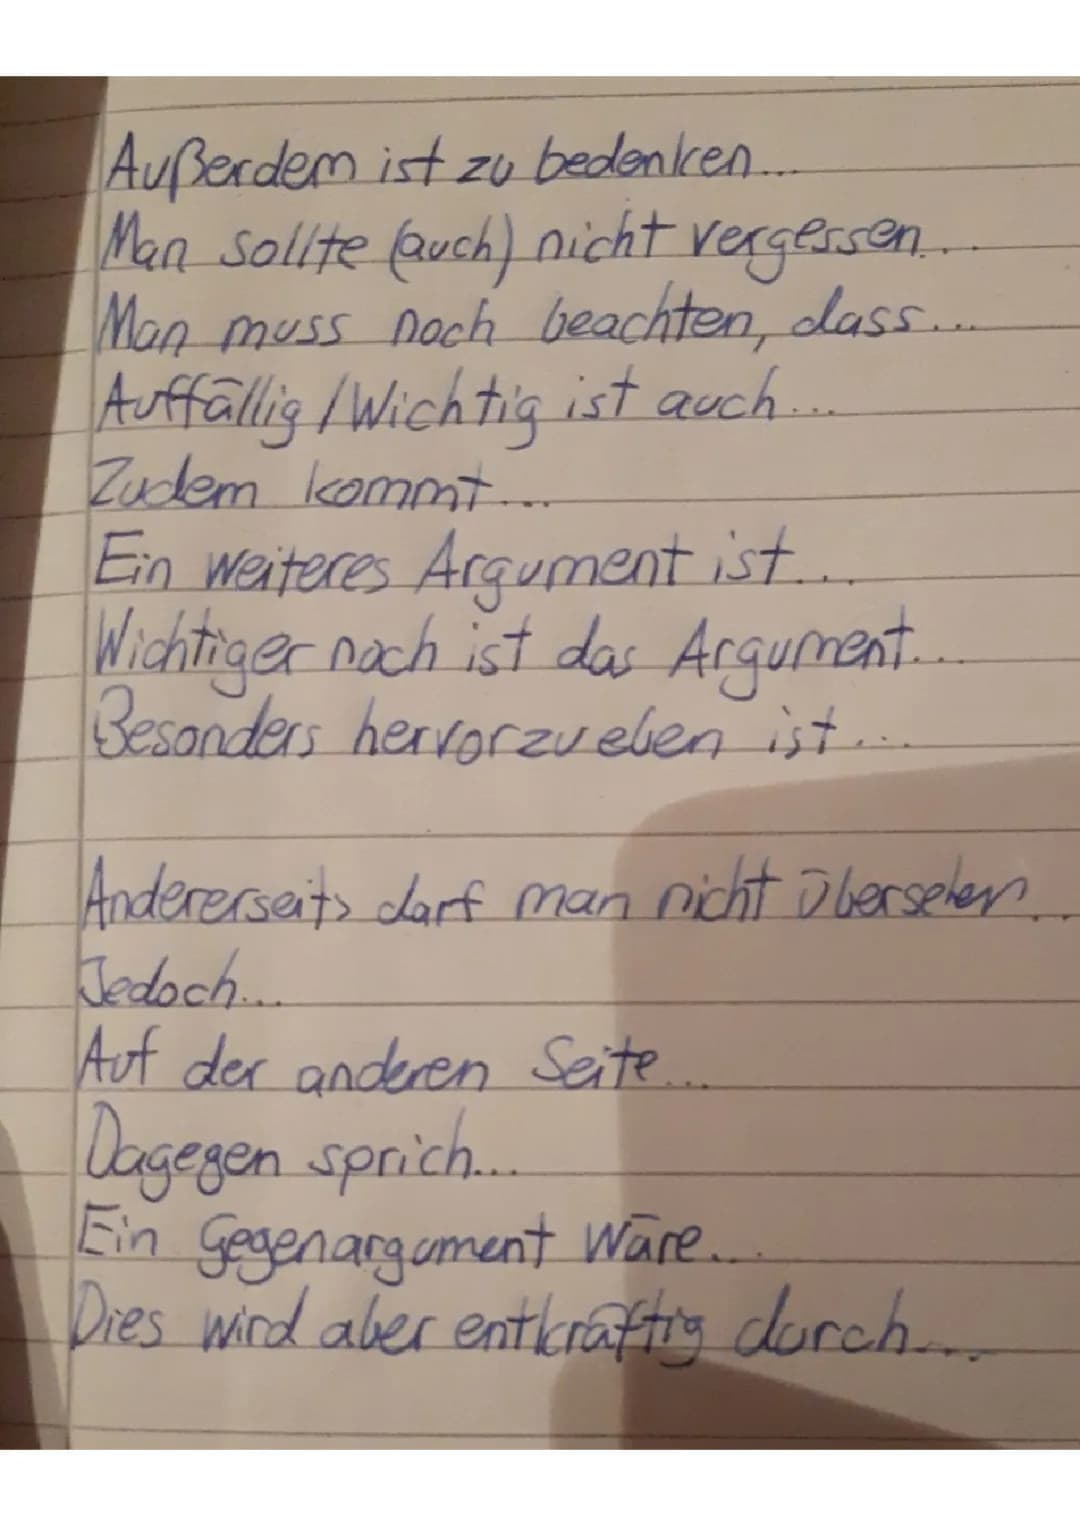 Außerdem ist zu bedenken...
Man sollte (auch) nicht vergessen...
Man muss noch beachten, dass...
Auffällig / Wichtig ist auch...
Zudem kommt...
Ein weiteres Argument ist...
Wichtiger noch ist das Argument...
Besonders hervorzueben ist...
Andererseits darf man nicht übersehen...
Jedoch...
Auf der anderen Seite...
Dagegen sprich...
Ein Gegenargument wäre...
Dies wird aber entkräftig durch...